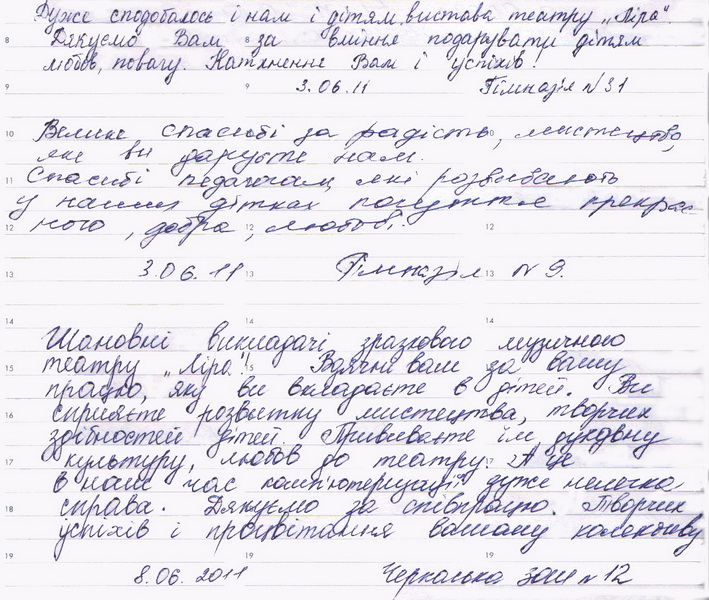 Дуже сподобалось і нам і дітям вистава театру „Ліра".
8 8 Дякуємо Вам за вміння подарувати дітям
любов, повагу. Натхнення Вам і успіхів!
9 9 3.06.11 Гімназія №31
10 10 Велике спасибі за радість, мистецтво,
яке ви даруєте нам.
11 Спасибі педагогам, які розвивають
у наших дітках почуття прекрас
12 12 12 ного, добра, любові.
13 13 13 3.06.11 Гімназія № 9.
14 14 14
Шановні викладачі зразкового музичного
15 15 театру „Ліра"! Вдячні вам за вашу
працю, яку ви вкладаєте в дітей. Ви
16 сприяєте розвитку мистецтва, творчих
здібностей дітей. Прививаєте їм духовну
17 17 культуру, любов до театру. А це
в наш час комп'ютеризації дуже нелегка
18 справа. Дякуємо за співпрацю. Творчих
успіхів і процвітання вашому колективу
19 19 19
8.06.2011 Черкаська зош №12